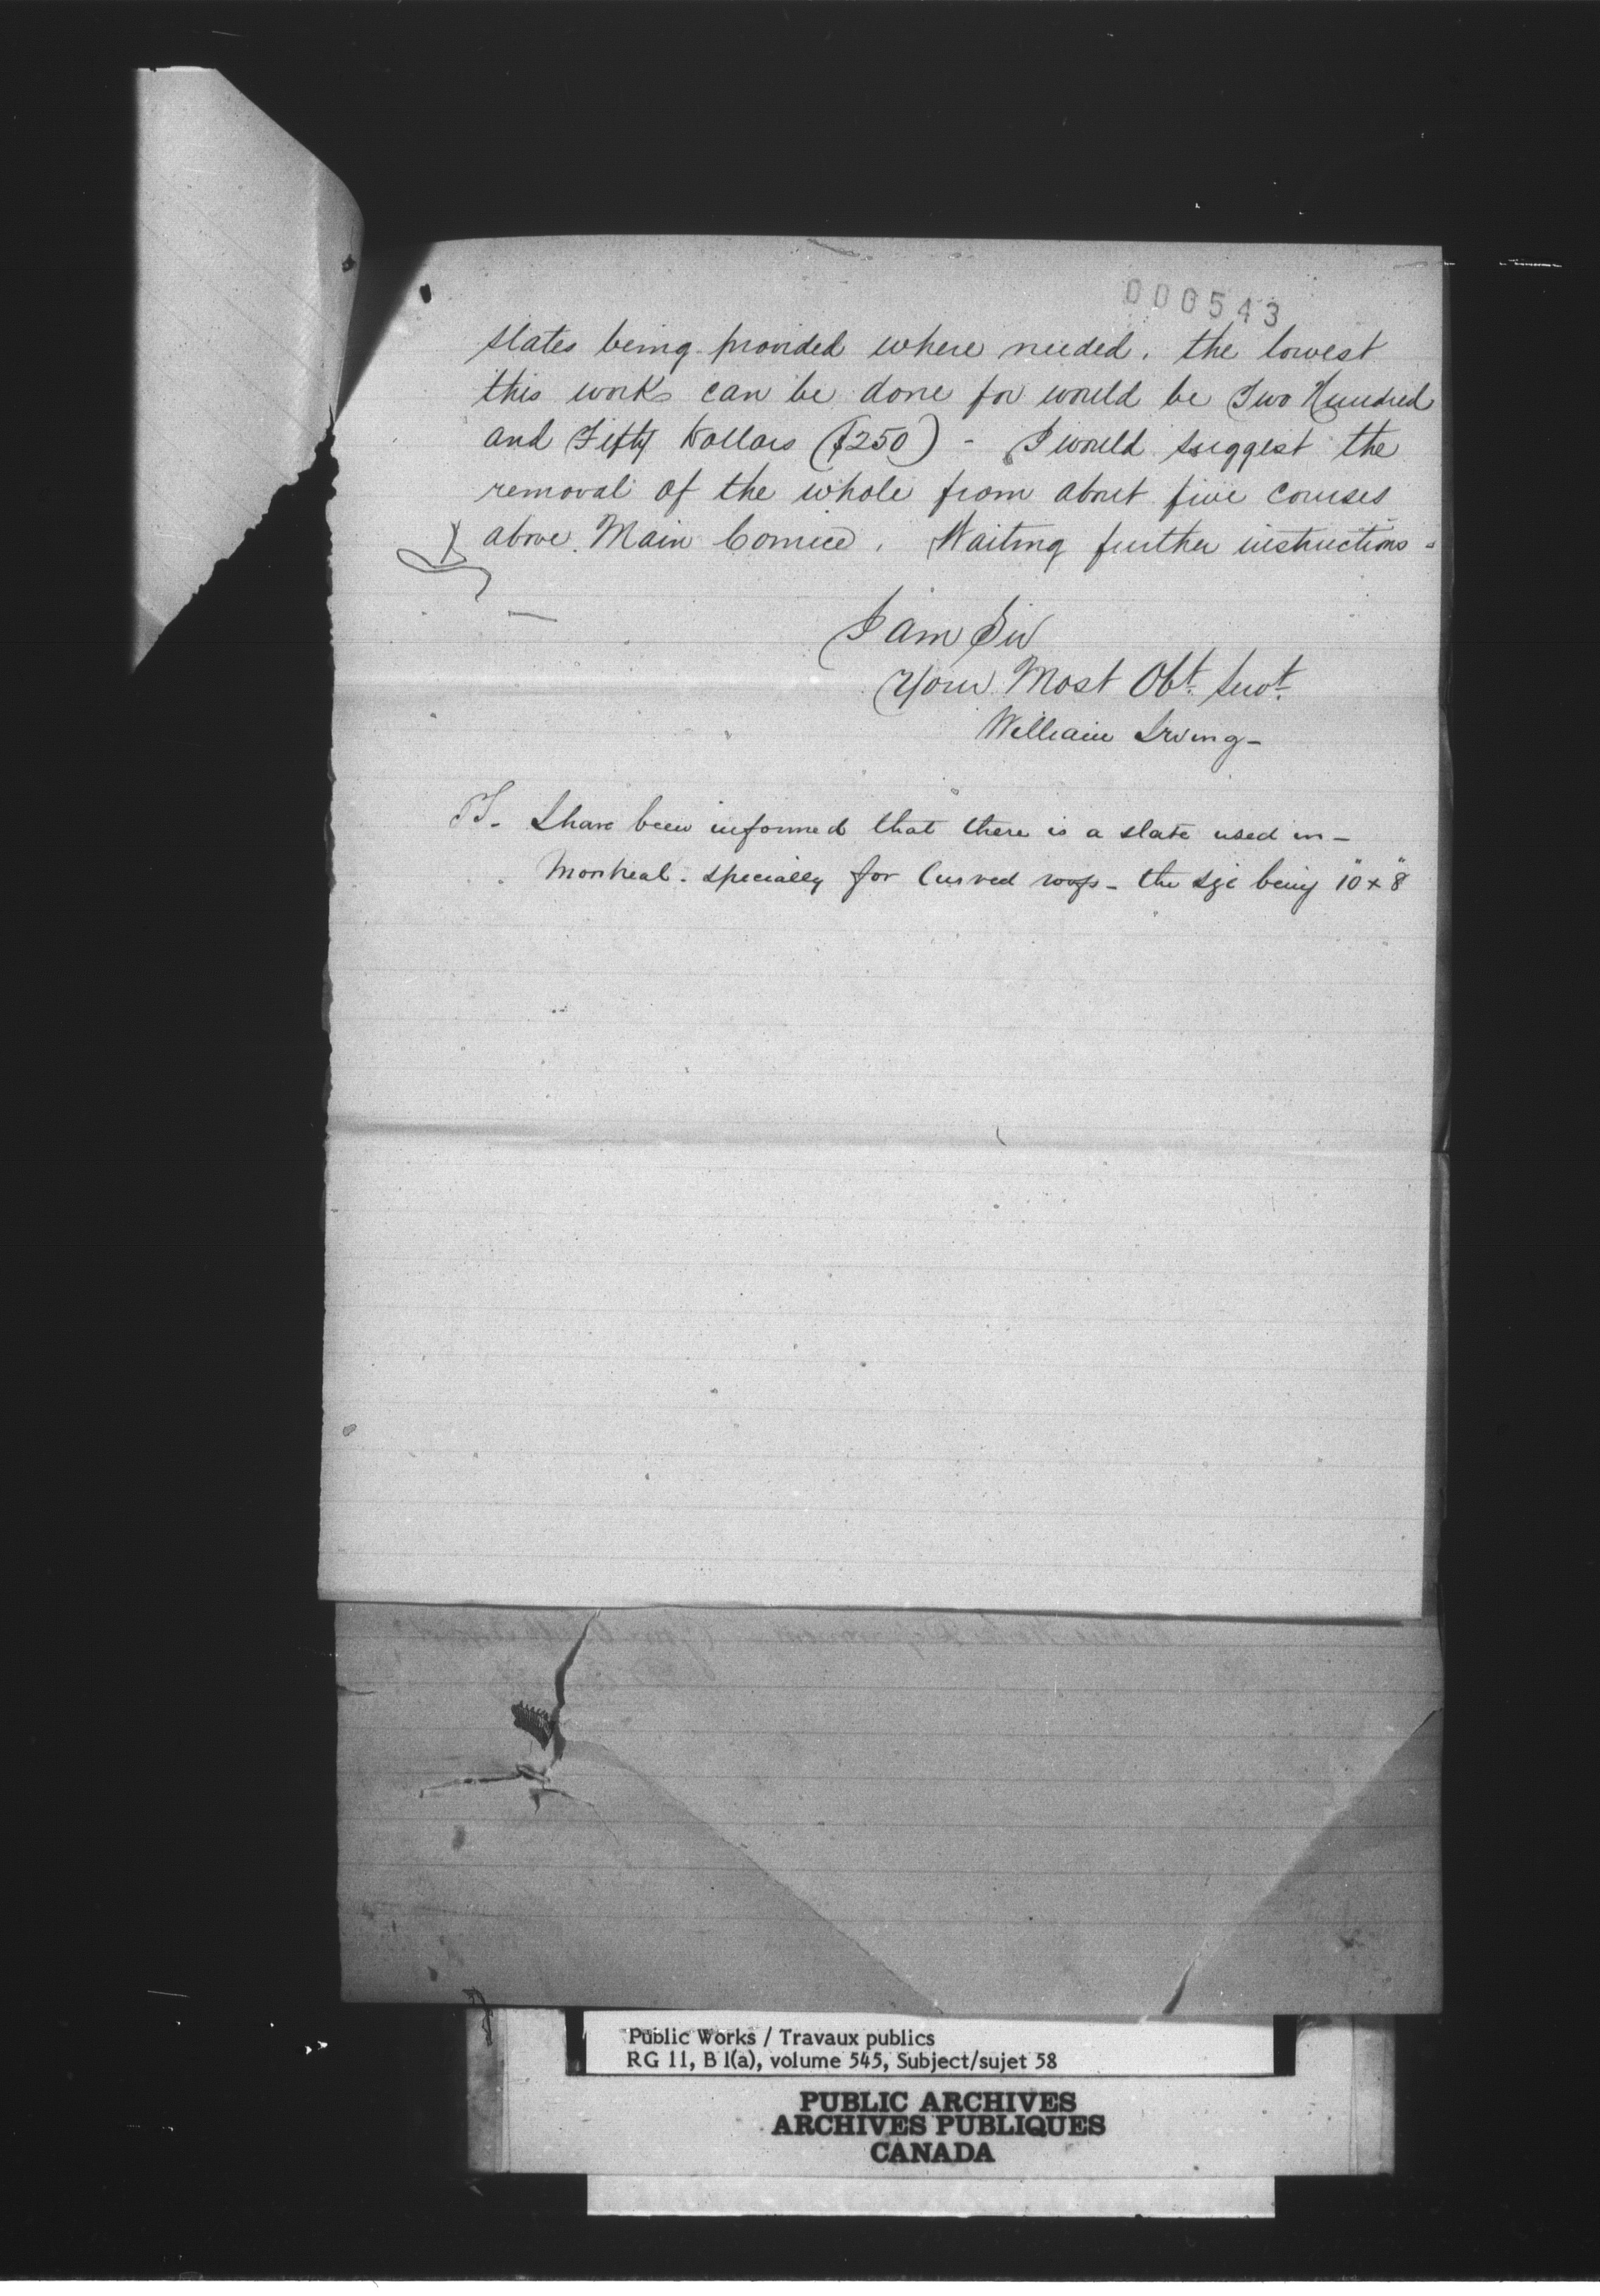 000543
slates being provided where needed, the lowest
this work can be done for would be Two Hundred
and Fifty Dollars ($250) - I would suggest the
removal of the whole from about five courses
above Main Cornice. Waiting further instructions -
I am Sir
Your Most Obt. Servt.
William Irving -
PS. I have been informed that there is a slate used in -
Montreal - specially for Curved roofs - the size being 10" x 8"
Public Works / Travaux publics
RG 11, B 1(a), volume 545, Subject/sujet 58
PUBLIC ARCHIVES
ARCHIVES PUBLIQUES
CANADA